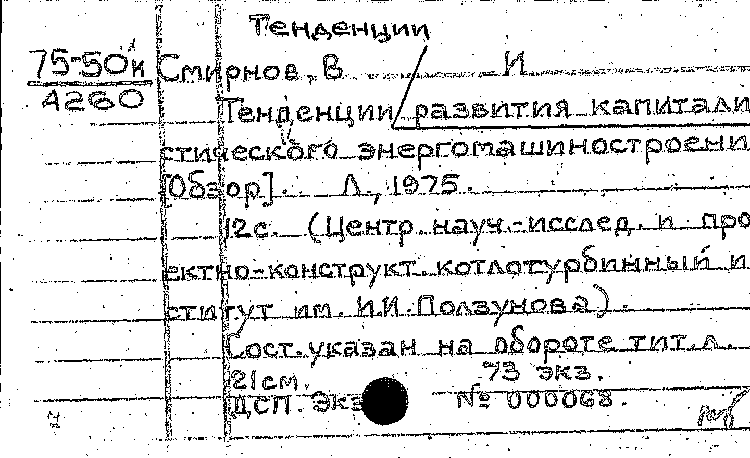 Тенденции
75-50к Смирнов, В И
А260
Тенденции развития капитали
стического энергомашиностроени
[Обзор]. Л., 1975.
12с. (Центр. науч.-исслед. и про
ектно-конструкт. котлотурбинный ин
ститут им. И.И. Ползунова).
Сост. указан на обороте тит. л.
21см. 73 экз.
ДСП. Экз № 000068.